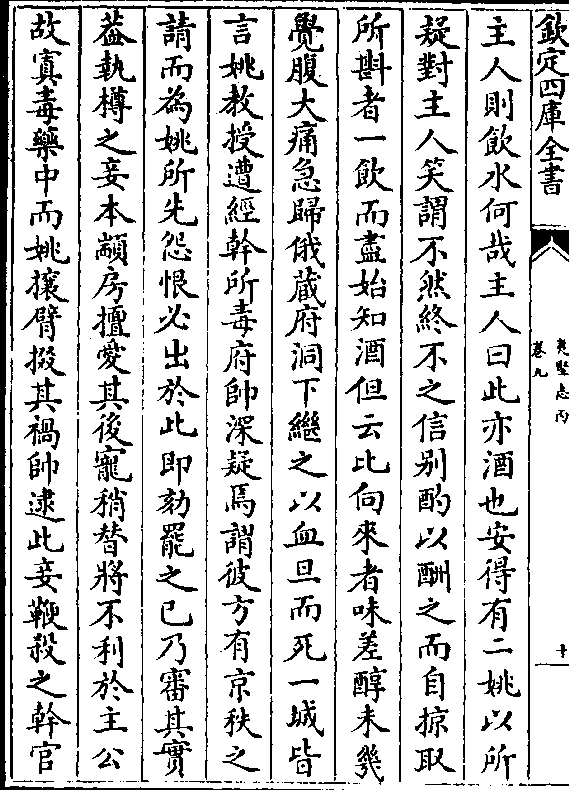 欽定四庫全書
夷堅志丙
卷九
十
主人則飲水何哉主人曰此亦酒也安得有二姚以所
疑對主人笑謂不然終不之信别酌以酬之而自掠取
所斟者一飲而盡始知酒但云比向來者味差醇未㡬
覺腹大痛急歸俄蔵府洞下繼之以血旦而死一城皆
言姚教授遭經幹所毒府帥深疑焉謂彼方有京秩之
請而為姚所先怨恨必出於此即劾罷之已乃審其實
葢執樽之妾本顓房擅愛其後寵稍替將不利於主公
故寘毒藥中而姚攘臂掇其禍帥逮此妾鞭殺之幹官